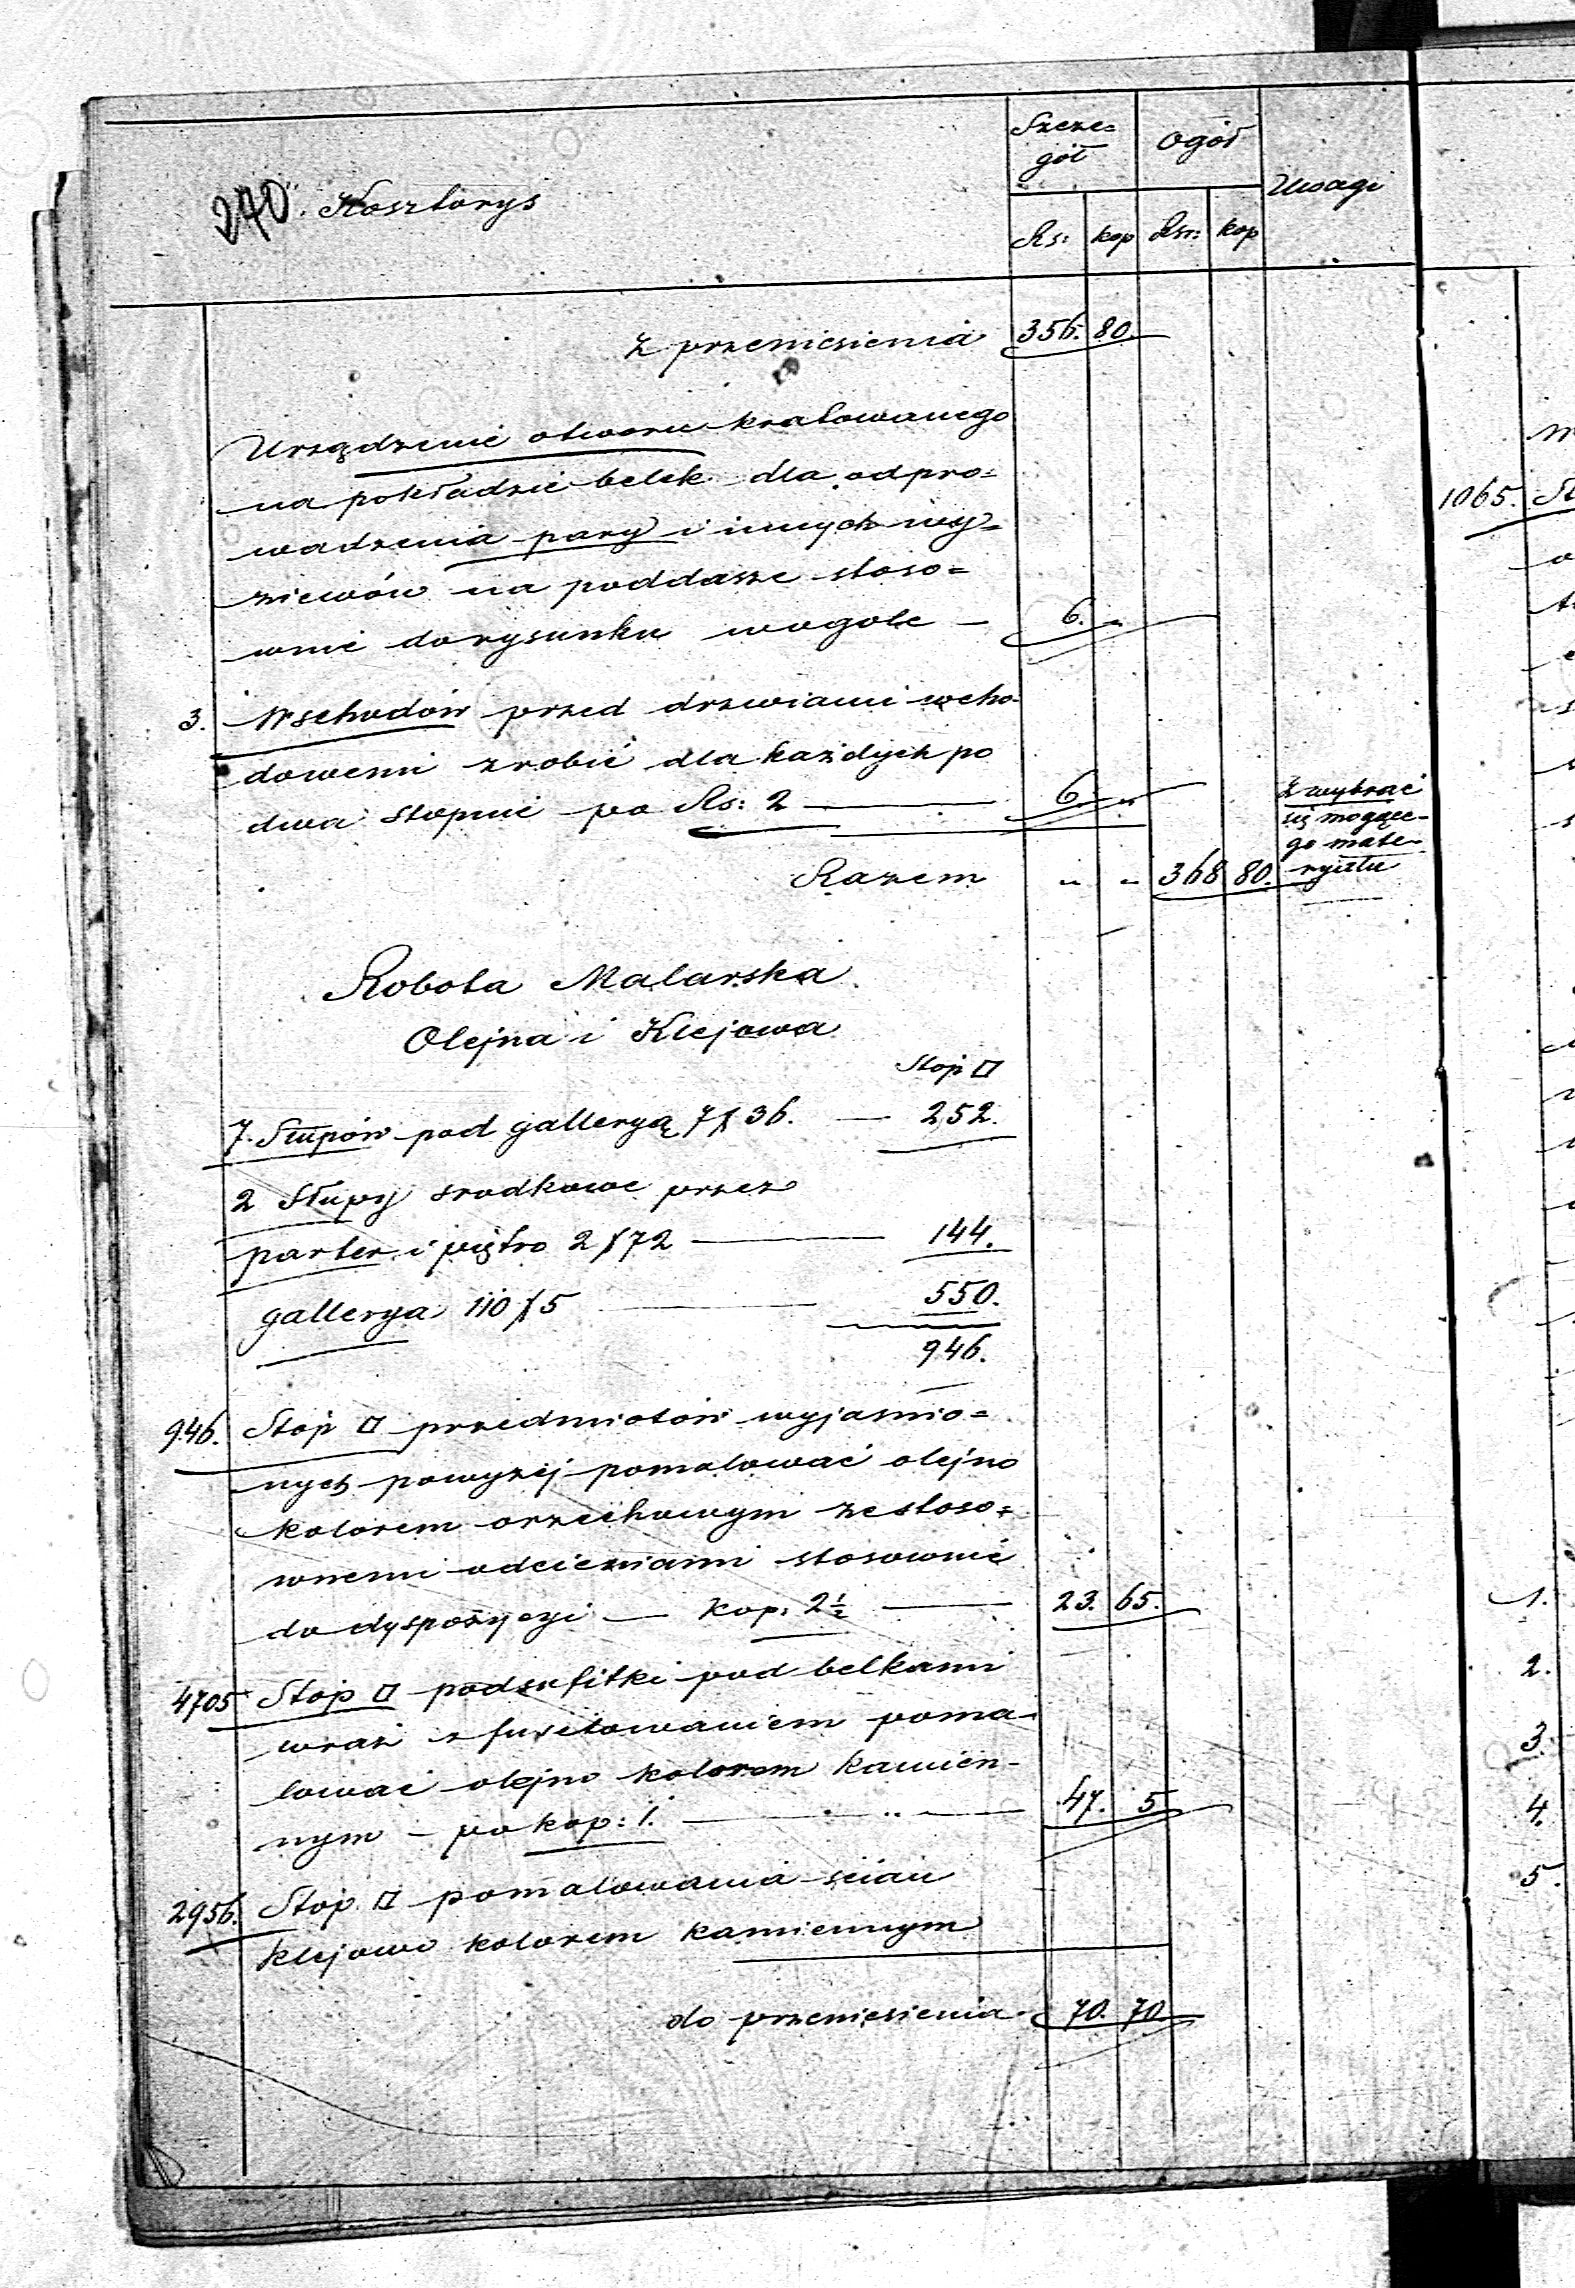 240. Kosztorys
Szcze=
gół
Ogół
Uwagi
Rs: kop Rsr: kop
Z przeniesienia 356. 80.
Urządzenie otworu kratowanego
na pokładzie belek dla odpro=
wadzenia pary i innych wy=
ziewów na poddasze stoso=
wnie do rysunku wogóle — 6. „
3. Wschodów przed drzwiami wcho-
dowemi zrobić dla każdych po
dwa stopnie po Rs: 2 — 6. „
Z wybrać
się mogące-
go mate-
ryału
Razem „ „ 368 80.
Robota Malarska
Olejna i Klejowa
Stóp □
7. Słupów pod galleryą 7 x 36. — 252.
2 Słupy srodkowe przez
parter i piętro 2 x 72 — 144.
gallerya 110 x 5 — 550.
946.
946. Stóp □ przedmiotów wyjasnio=
nych powyzej pomalować olejno
kolorem orzechowym ze stoso=
wnemi odcieniami stosownie
do dyspozycyi — kop: 2½ — 23. 65.
4705 Stóp □ podsufitki pod belkami
wraz z poma-
lować olejno kolorem kamien-
nym — po kop: 1. — 47. 5
2956. Stóp □ pomalowania scian
klejowo kolorem kamiennym
do przeniesienia 70. 70
1065. St
1.
2.
3.
4.
5.